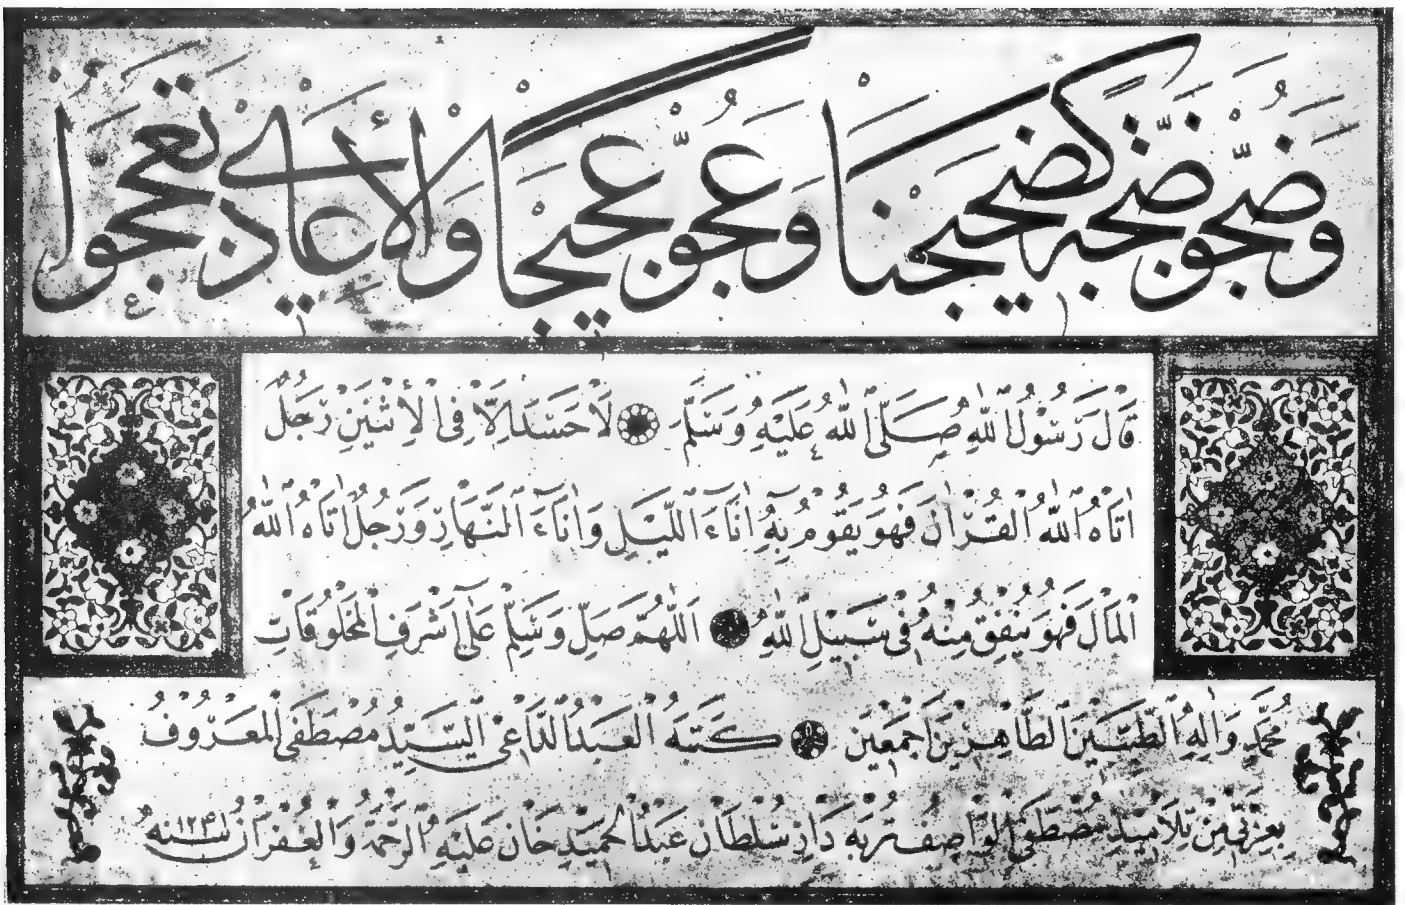 وضجوا ضجة كضجيجنا وعجوا عجيجا والأعادي تعججوا
قَالَ رَسُوْلُ اللهِ صَلَّى اللهُ عَلَيْهِ وَسَلَّمَ لَا حَسَدَ اِلَّا فِى الْاِثْنَيْنِ رَجُلٌ
اٰتَاهُ اللهُ الْقُرْاٰنَ فَهُوَ يَقُوْمُ بِهِ اٰنَاءَ اللَّيْلِ وَاٰنَاءَ النَّهَارِ وَرَجُلٌ اٰتَاهُ اللهُ
الْمَالَ فَهُوَ يُنْفِقُ مِنْهُ فِى سَبِيْلِ اللهِ اَللّٰهُمَّ صَلِّ وَسَلِّمْ عَلٰى اَشْرَفِ الْمَخْلُوقَاتِ
مُحَمَّدٍ وَاٰلِهِ الطَّيِّبِيْنَ الطَّاهِرِيْنَ اَجْمَعِيْنَ كَتَبَهُ الْعَبْدُ الدَّاعِى السَّيِّدُ مُصْطَفَى الْمَعْرُوْفُ
تِلَامِيْذِ مُصْطَفَى الْوَاصِفُ تُرْبَه دَارِ سُلْطَان عَبْدُ الْحَمِيْدِ خَان عَلَيْهِ الرَّحْمَةُ وَالْغُفْرَان سنه